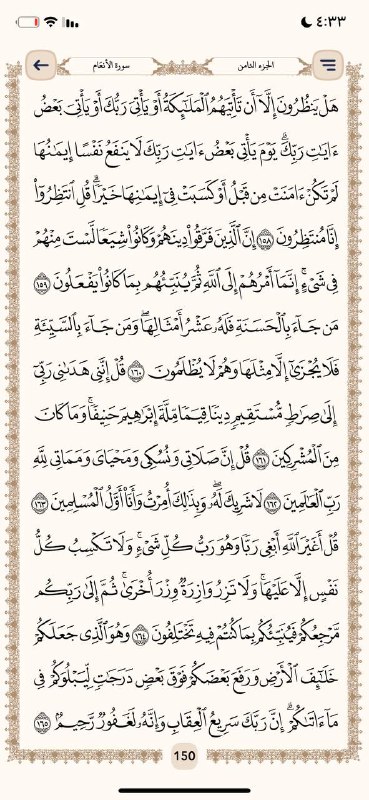 ٤:٣٣
سورة الأنعام
الجزء الثامن
هَلْ يَنظُرُونَ إِلَّآ أَن تَأْتِيَهُمُ ٱلْمَلَـٰٓئِكَةُ أَوْ يَأْتِىَ رَبُّكَ أَوْ يَأْتِىَ بَعْضُ
ءَايَـٰتِ رَبِّكَ ۗ يَوْمَ يَأْتِى بَعْضُ ءَايَـٰتِ رَبِّكَ لَا يَنفَعُ نَفْسًا إِيمَـٰنُهَا
لَمْ تَكُنْ ءَامَنَتْ مِن قَبْلُ أَوْ كَسَبَتْ فِىٓ إِيمَـٰنِهَا خَيْرًا ۗ قُلِ ٱنتَظِرُوٓا۟
إِنَّا مُنتَظِرُونَ ١٥٨ إِنَّ ٱلَّذِينَ فَرَّقُوا۟ دِينَهُمْ وَكَانُوا۟ شِيَعًا لَّسْتَ مِنْهُمْ
فِى شَىْءٍ ۚ إِنَّمَآ أَمْرُهُمْ إِلَى ٱللَّهِ ثُمَّ يُنَبِّئُهُم بِمَا كَانُوا۟ يَفْعَلُونَ ١٥٩
مَن جَآءَ بِٱلْحَسَنَةِ فَلَهُۥ عَشْرُ أَمْثَالِهَا ۖ وَمَن جَآءَ بِٱلسَّيِّئَةِ
فَلَا يُجْزَىٰٓ إِلَّا مِثْلَهَا وَهُمْ لَا يُظْلَمُونَ ١٦٠ قُلْ إِنَّنِى هَدَىٰنِى رَبِّىٓ
إِلَىٰ صِرَٰطٍ مُّسْتَقِيمٍ دِينًا قِيَمًا مِّلَّةَ إِبْرَٰهِيمَ حَنِيفًا ۚ وَمَا كَانَ
مِنَ ٱلْمُشْرِكِينَ ١٦١ قُلْ إِنَّ صَلَاتِى وَنُسُكِى وَمَحْيَاىَ وَمَمَاتِى لِلَّهِ
رَبِّ ٱلْعَـٰلَمِينَ ١٦٢ لَا شَرِيكَ لَهُۥ ۖ وَبِذَٰلِكَ أُمِرْتُ وَأَنَا۠ أَوَّلُ ٱلْمُسْلِمِينَ ١٦٣
قُلْ أَغَيْرَ ٱللَّهِ أَبْغِى رَبًّا وَهُوَ رَبُّ كُلِّ شَىْءٍ ۚ وَلَا تَكْسِبُ كُلُّ
نَفْسٍ إِلَّا عَلَيْهَا ۚ وَلَا تَزِرُ وَازِرَةٌ وِزْرَ أُخْرَىٰ ۚ ثُمَّ إِلَىٰ رَبِّكُم
مَّرْجِعُكُمْ فَيُنَبِّئُكُم بِمَا كُنتُمْ فِيهِ تَخْتَلِفُونَ ١٦٤ وَهُوَ ٱلَّذِى جَعَلَكُمْ
خَلَـٰٓئِفَ ٱلْأَرْضِ وَرَفَعَ بَعْضَكُمْ فَوْقَ بَعْضٍ دَرَجَـٰتٍ لِّيَبْلُوَكُمْ فِى
مَآ ءَاتَىٰكُمْ ۗ إِنَّ رَبَّكَ سَرِيعُ ٱلْعِقَابِ وَإِنَّهُۥ لَغَفُورٌ رَّحِيمٌۢ ١٦٥
150